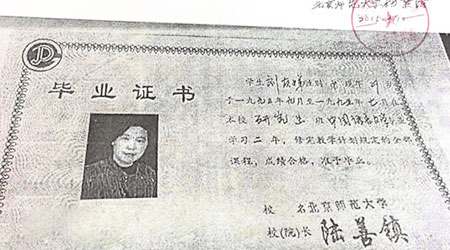 北京师范大学
毕业证书
学生 性别 女 现年
于一九九 年九月至一九九五年七月在
本校 研究生 班中国语言文学
学习 二 年，修完教学计划规定的全部
课程，成绩合格，准予毕业。
校 名北京师范大学
校(院)长 陆善镇